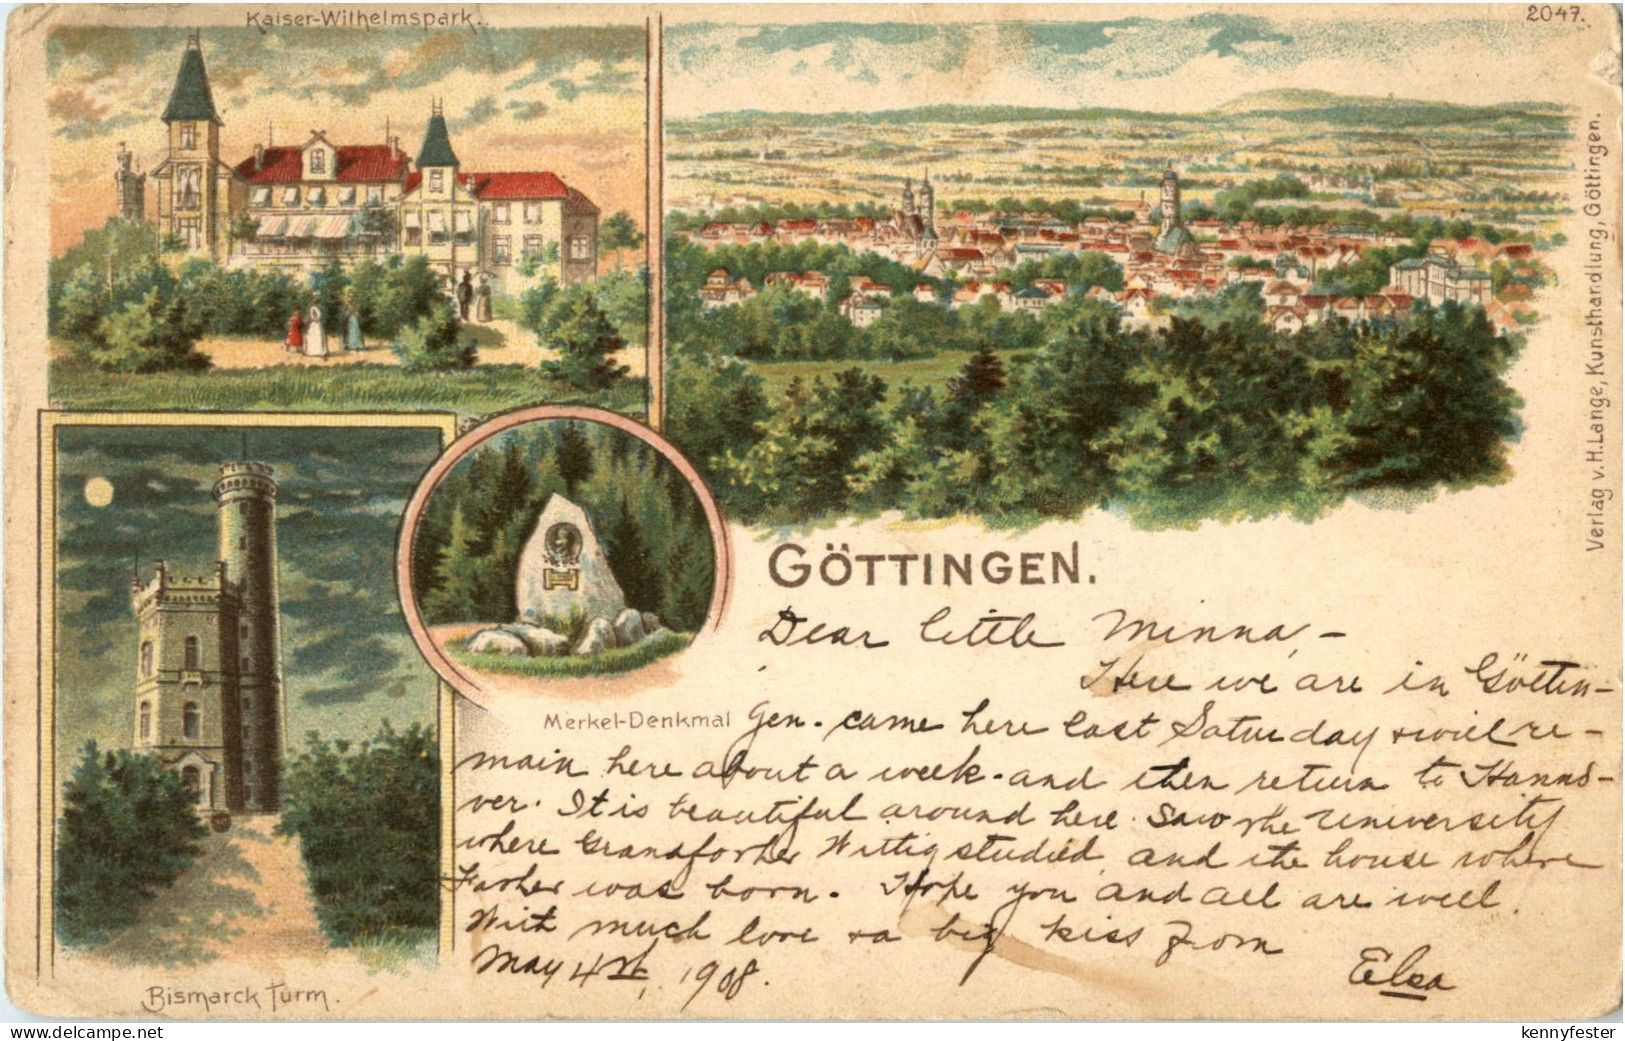 Kaiser-Wilhelmspark.
2047.
Verlag v. H. Lange, Kunsthandlung, Göttingen.
GÖTTINGEN.
Merkel-Denkmal
Bismarck Turm.
Dear little Minna, –
Here we are in Göttin-
gen. came here last Saturday & will re-
main here about a week. and then return to Hanno-
ver. It is beautiful around here. Saw the University
where Grandfather Wittig studied, and the house where
Father was born. Hope you and all are well.
With much love & a big kiss from
May 4st, 1908.
Elsa
www.delcampe.net
kennyfester